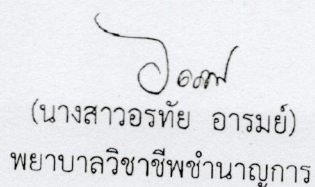 (นางสาวอรทัย อารมย์)
พยาบาลวิชาชีพชำนาญการ